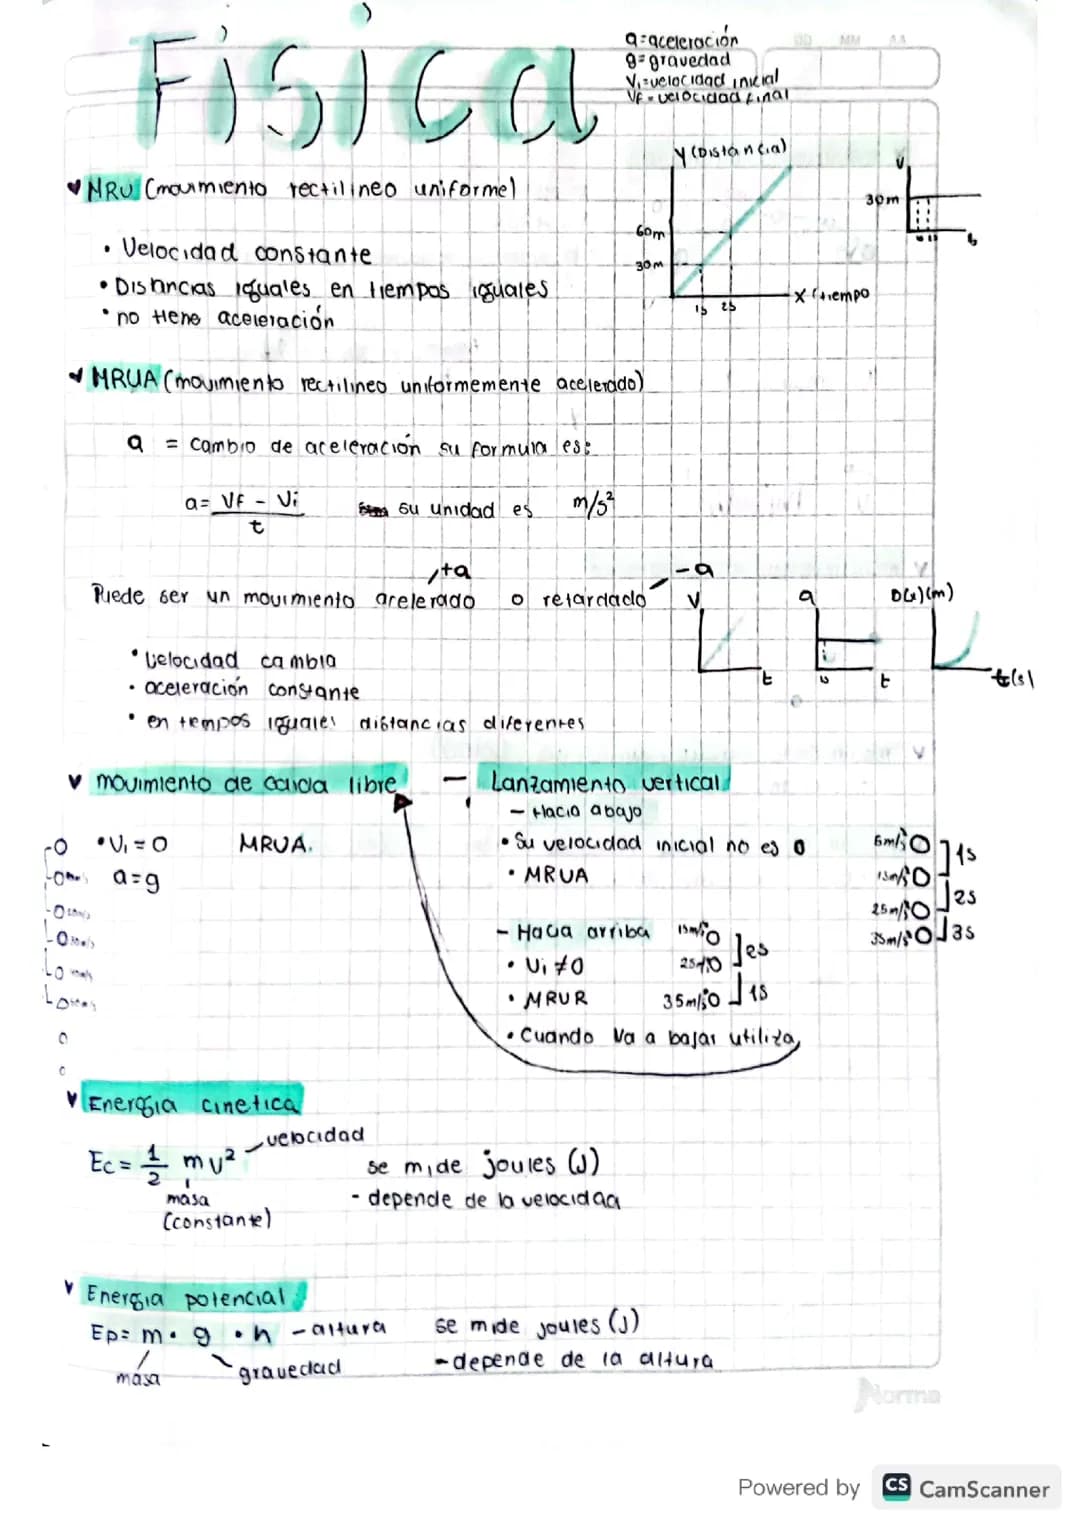 Física
a=aceleración
g=gravedad
Vi=velocidad inicial
VF=velocidad final
DD MM AA
MRU (movimiento rectilineo uniforme)
• Velocidad constante
• Distancias iguales en tiempos iguales
• no tiene aceleración
Y (Distancia)
60m
30m
1s 2s
X (tiempo
V
30m
t
MRUA (movimiento rectilineo uniformemente acelerado)
a = cambio de aceleración su formula es:
a= VF - Vi
t
su unidad es m/s²
+a
-a
Puede ser un movimiento acelerado o retardado
V
t
a
t
D(x)(m)
t(s)
• velocidad cambia
• aceleración constante
• en tiempos iguales distancias diferentes
movimiento de caida libre - Lanzamiento vertical
- Hacia abajo
• Vi = 0 MRUA.
a=g
• Su velocidad inicial no es 0
• MRUA
15m/s
25m/s
35m/s
1s
2s
3s
- Hacia arriba
• Vi ≠ 0
• MRUR
15m/s
35m/s
1s
• Cuando va a bajar utiliza
Energia cinetica
Ec = 1/2 mv² velocidad
masa
(constante)
se mide joules (J)
- depende de la velocidad
Energia potencial
Ep= m • g • h - altura
masa
gravedad
se mide joules (J)
- depende de la altura
Norma
Powered by CS CamScanner